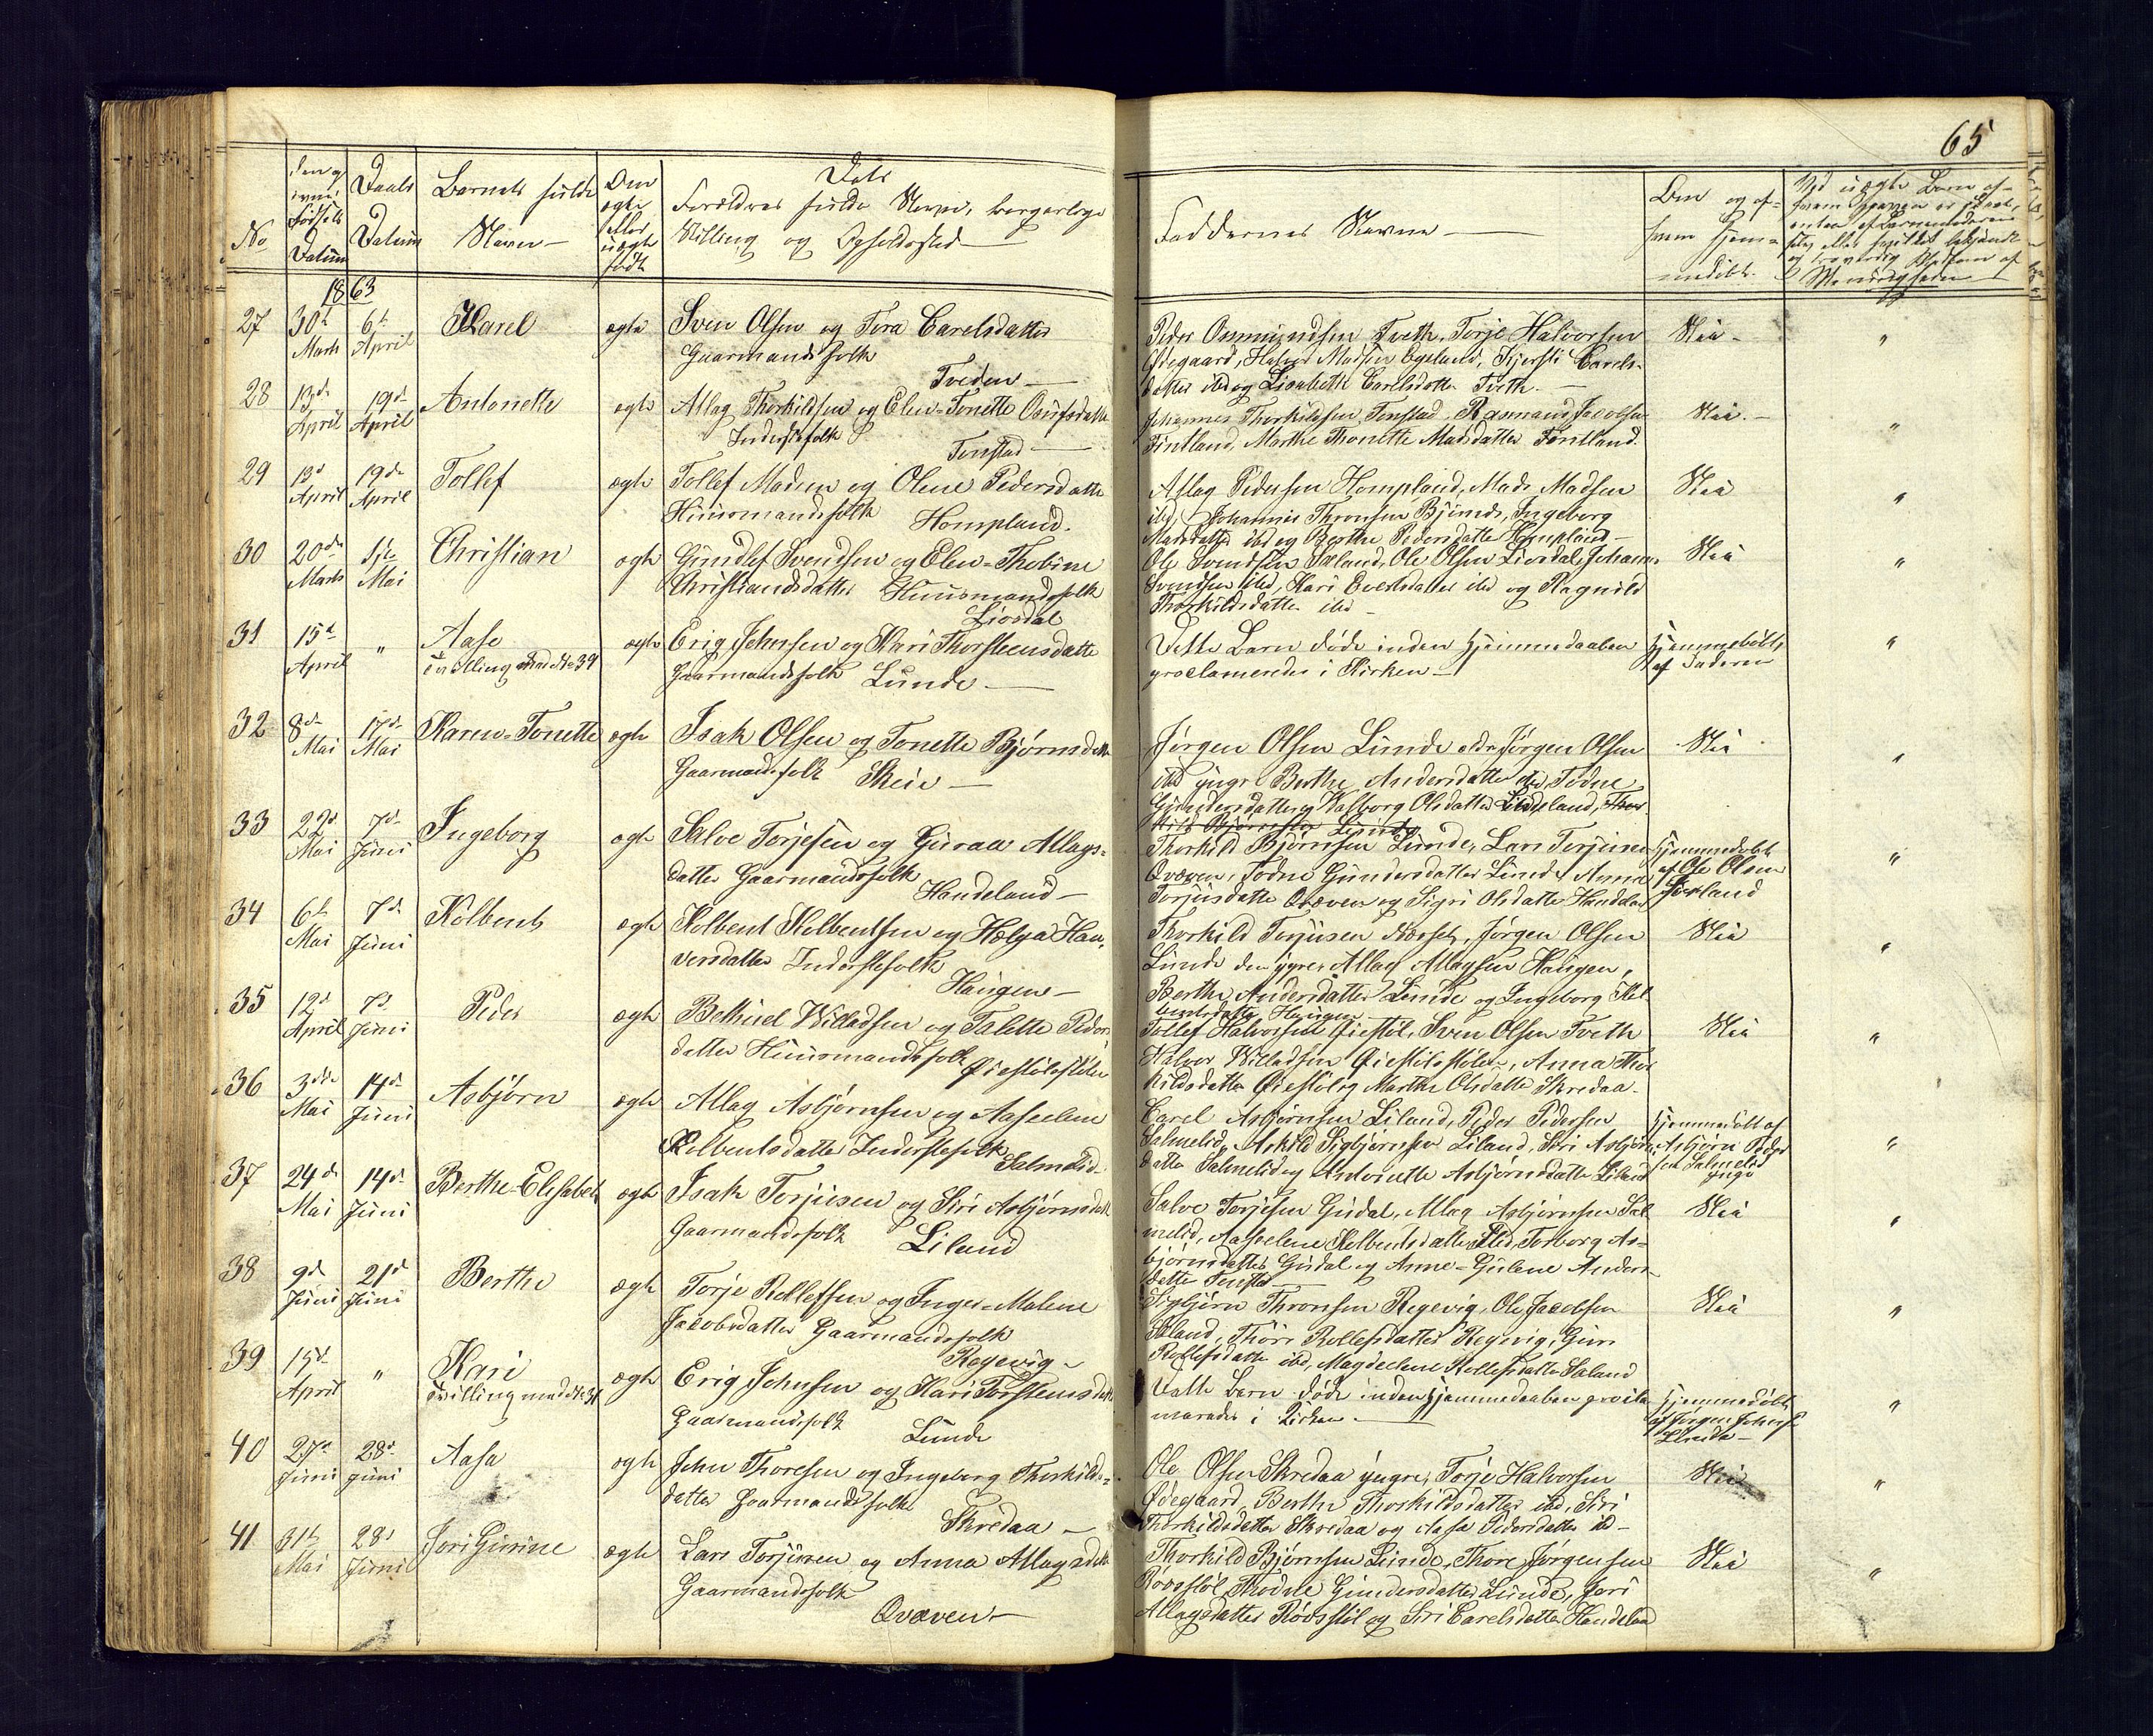 65
No
Den og
Fødsels
Datum
Daabs
Datum
Barnets fulde
Navn
Om
ægte
eller
uægte
født
Forældres fulde Navn, borgerlige
Stilling og Opholdssted
Faddernes Navne
Om og af
hvem hjem-
medøbt.
1863
27 30te Marts 6te April Karel ægte Sven Olsen og Tora Carelsdatter
Gaarmandsfolk
Tveden
Peder Osmundsen Tveth, Torje Halvorsen
Ødegaard, Halvor Madsen Egeland, Kjersti Carels-
datter ibd og Lisabeth Carelsdatter Tveth
Nei
28 13de April 19de April Antonette ægte Atlag Thorkildsen og Elen-Tonette Osufsdatter
Inderstfolk
Tonstad
Johannes Thorkildsen Tonstad, Rasmus Jacobsen
Fintland, Marthe Thonette Madsdatter Fintland.
Nei
29 13d April 19de April Tollef ægte Tollef Madsen og Olene Pedersdatter
Huusmandsfolk Hompland.
Atlag Pedersen Hompland, Mads Madsen
ibd, Johannes Thronsen Bjunes, Ingeborg
Madsdatter ibd og Berthe Pedersdatter Hompland
Nei
30 20de Marts 1ste Mai Christian ægte Gundlef Svendsen og Elen-Thobine
Christiandsdatter Huusmandsfolk
Liosdal
Ole Svendsen Sæland, Ole Olsen Liosdal, Johannes
Svendsen ibd, Kari Evertsdatter ibd og Ragnild
Thorkildsdatter ibd
Nei
31 15de April " Aase
Tvilling med No 39
ægte Erig Johnsen og Kari Thorsteensdatter
Gaarmandsfolk Lunde
Dette Barn døde inden Hjemmedaaben
proclameredes i Kirken
Hjemmedøbt
af Faderen
32 8de Mai 17de Mai Karen-Tonette ægte Isak Olsen og Tonette Bjørnsdatter
Gaarmandsfolk Skeie
Jørgen Olsen Lunde eldre, Jørgen Olsen
ibd yngre Berthe Andersdatter ibd, Todne
Gundersdatter og Walborg Olsdatter Lindeland,
Nei
33 22d Mai 7de Juni Ingeborg ægte Salve Torjesen og Guraa Atlags-
datter Gaarmandsfolk
Handeland
Thorkild Bjørnsen Lunde, Lars Torjusen
Qvæven, Todne Gundersdatter Lunde, Anne
Torjusdatter Qvæven og Sigri Olsdatter Handeland
Hjemmedøbt
af Ole Olsen
34 6te Mai 7de Juni Kolbent ægte Kolbent Kolbentsen og Helga Han-
versdatter Inderstefolk
Haugen
Thorkild Torjusen Netset, Jørgen Olsen
Lunde den ygre, Atlag Atlagsen Haugen,
Berthe Andersdatter Lunde og Ingeborg Kol-
bentsdatter Haugen
Nei
35 12d April 7de Juni Peder ægte Bethuel Willadsen og Talette Peders-
datter Huusmandsfolk Øiestølstølen
Tollef Halvorsen Øiestøl, Sven Olsen Tveth
Halvor Willadsen Øiestølstølen, Anna Thor-
kildsdatter Øiestøl og Marthe Olsdatter Skredaa.
Nei
36 3die Mai 14de Juni Asbjørn ægte Atlag Asbjørnsen og Aaseelene
Kolbentsdatter Inderstefolk
Salmelid
Carel Asbjørnsen Liland, Peder Pedersen
Salmelid, Askild Sigbjørnsen Liland, Siri Asbjørns-
datter Salmelid og Antonette Asbjørnsdatter Liland
Hjemmedøbt af
Asbjørn Peder-
sen Salmelid
37 24de Mai 14de Juni Berthe-Elisabet ægte Isak Torjusen og Siri Asbjørnsdatter
Gaarmandsfolk Liland
Salve Torjesen Gusdal, Atlag Asbjørnsen Sal-
melid, Aaseelene Kolbentsdatter ibd, Torborg As-
bjørnsdatter Gusdal og Anne-Gulene Anders-
datter Tonstad
Nei
38 9de Juni 21de Juni Berthe ægte Torje Rollefsen og Inger-Malene
Jacobsdatter Gaarmandsfolk
Regevig
Sigbjørn Thronsen Regevig, Ole Jacobsen
Haland, Thore Rollefsdatter Regevig, Guri
Rollefsdatter ibd, Magdelene Rollefsdatter Haland
Nei
39 15de April " Kari
Tvilling med No 31
ægte Erig Johnsen og Kari Torsteensdatter
Gaarmandsfolk Lunde
Dette Barn døde inden Hjemmedaaben procla-
meredes i Kirken
Hjemmedøbt
af Jørgen Johns
Lunde
40 27de Juni 28de Juni Aasa ægte John Thoresen og Ingeborg Thorkilds-
datter Gaarmandsfolk
Skredaa
Ole Olsen Skredaa yngre, Torje Halvorsen
Ødegaard, Berthe Thorkildsdatter ibd, Siri
Thorkildsdatter Skredaa og Aasa Pedersdatter ibd
Nei
41 31te Mai 28de Juni Jori Gurine ægte Lars Torjusen og Anna Atlagsdatter
Gaarmandsfolk
Qvæven
Thorkild Bjørnsen Lunde, Thore Jørgensen
Røvsstøl, Thodne Gundersdatter Lunde, Jori
Atlagsdatter Røvsstøl og Siri Carelsdatter Handeland
Nei